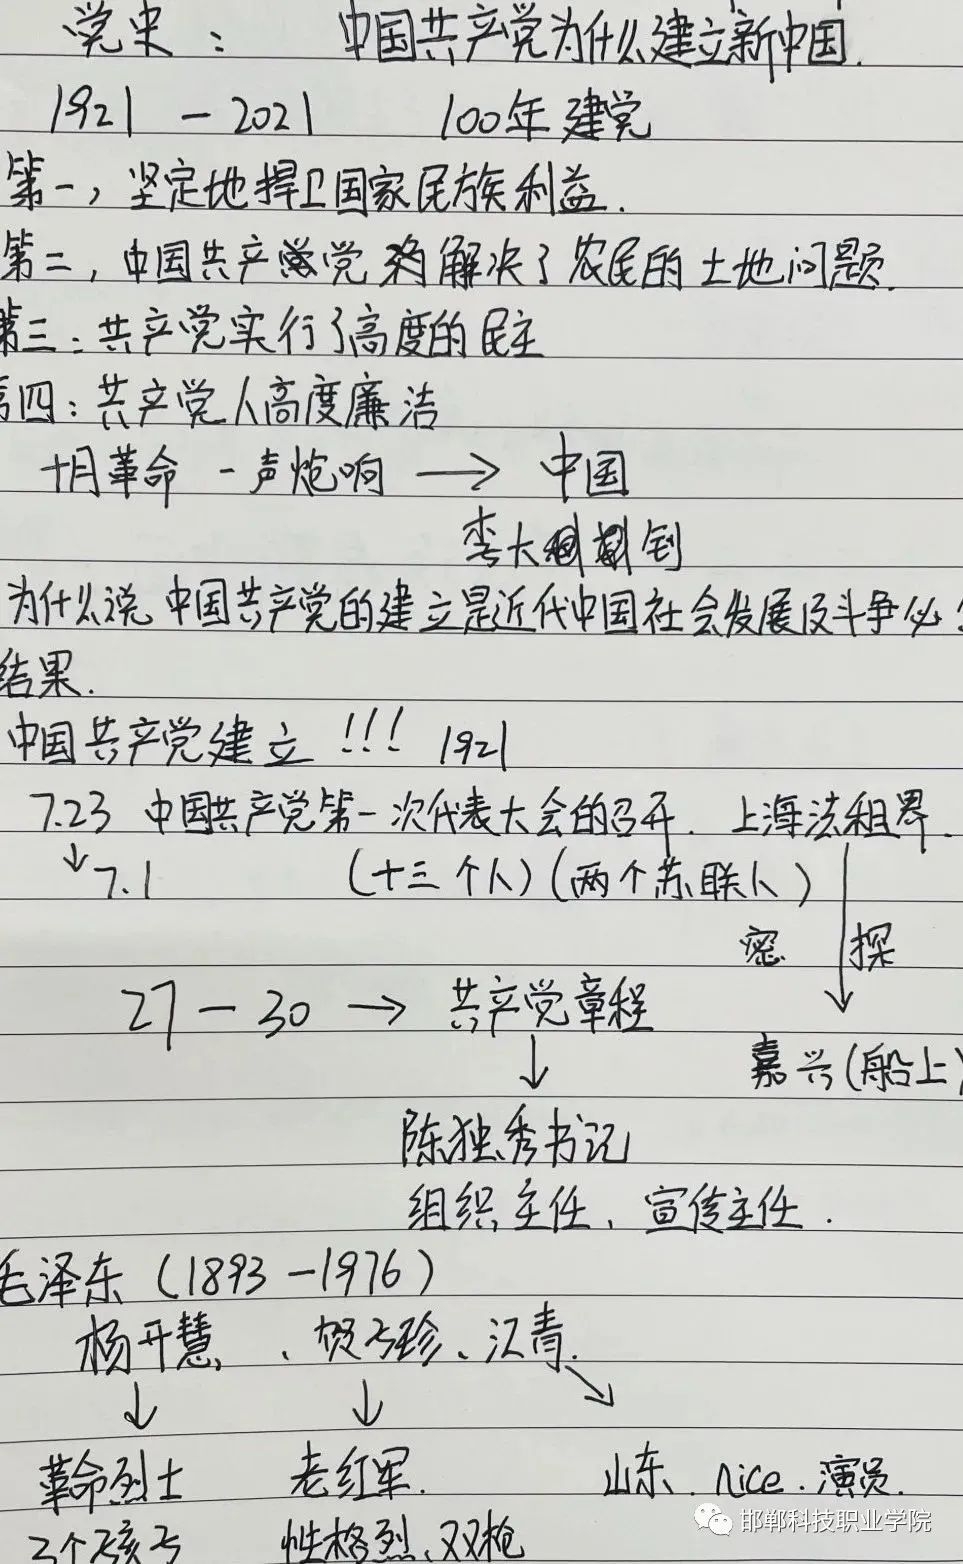 党史： 中国共产党为什么建立新中国.
1921 — 2021 100年建党
第一，坚定地捍卫国家民族利益.
第二，中国共产党 解决了农民的土地问题.
第三：共产党实行了高度的民主
第四：共产党人高度廉洁
十月革命 一声炮响 → 中国
李大钊
为什么说中国共产党的建立是近代中国社会发展及斗争必
结果.
中国共产党建立!!! 1921
7.23 中国共产党第一次代表大会的召开. 上海法租界.
↓7.1 (十三个人)(两个苏联人)
密 探
27 — 30 → 共产党章程
嘉兴(船上)
陈独秀书记
组织主任、宣传主任.
毛泽东 (1893 -1976)
杨开慧、贺子珍、江青.
革命烈士 老红军. 山东. nice. 演员.
3个孩子 性格烈、双枪
邯郸科技职业学院